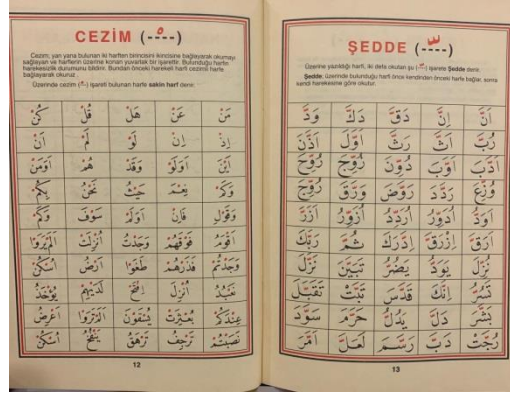 CEZİM (-----)
Cezim; yan yana bulunan iki harften birincisini ikincisine bağlayarak okumayı
sağlayan ve harflerin üzerine konan yuvarlak bir işarettir. Bulunduğu harfin
harekesizlik durumunu bildirir. Bundan önceki harekeli harfi cezimli harfe
bağlayarak okuruz.
Üzerinde cezim (-ْ-) işareti bulunan harfe sakin harf denir.
مَنْ عَنْ هَلْ قُلْ كُنْ
اِذْ اِنْ لَوْ لَمْ اَنْ
اَيْنَ اَوَلَوْ وَقَدْ هُمْ اَوَمَنْ
وَكَمْ بَعْدَ حَيْثُ نَحْنُ بِكُمْ
وَقَوْلِ فَاِنْ اَوَلَمْ سَوْفَ وَكَمْ
فَوْقَهُمْ وَجَدْتُ اُنْزِلَتْ اَلَمْ يَرَوْا
وَجَدْتُمْ فَذَرْهُمْ طَغَوْا اَرْضُ اُسْكُنْ
نَعْبُدُ اُنْزِلَ لَدَيْهِمْ يُؤْخَذُ
عِنْدَكُمْ بُعْثِرَتْ يُنْفِقُونَ اَلَمْ تَرَوْا اَعْرِضْ
تَرْجُفُ تَزْهَقَ يَنْفُخُ اُسْكُنْ
12
ŞEDDE (-----)
Üzerine yazıldığı harfi, iki defa okutan şu (-ّ-) işarete Şedde denir.
Şedde, üzerinde bulunduğu harfi önce kendinden önceki harfe bağlar, sonra
kendi harekesine göre okutur.
اَنَّ اِنَّ دَقَّ دَكَّ وَدَّ
رُبَّ رَثَّ اَوَّلَ اَذَّنَ
اَدَّبَ اَوَّبَ دُوِّنَ زُوِّجَ رُوِّحَ
وُزِّعَ رَدَّدَ رَوَّضَ وَرَّقَ زُوِّجَ
رَبَّكَ ثُمَّ
نُزِّلَ يَوَدُّ يَضُرُّ تَبَيَّنَ نَزَّلَ
اِنَّكَ قَدَّسَ تَبَّتْ تَقَبَّلَ
بَشَّرَ دَلَّ يَدُلُّ حَرَّمَ سَوَّدَ
رُجَّتْ دَبَّ لَعَلَّ
13